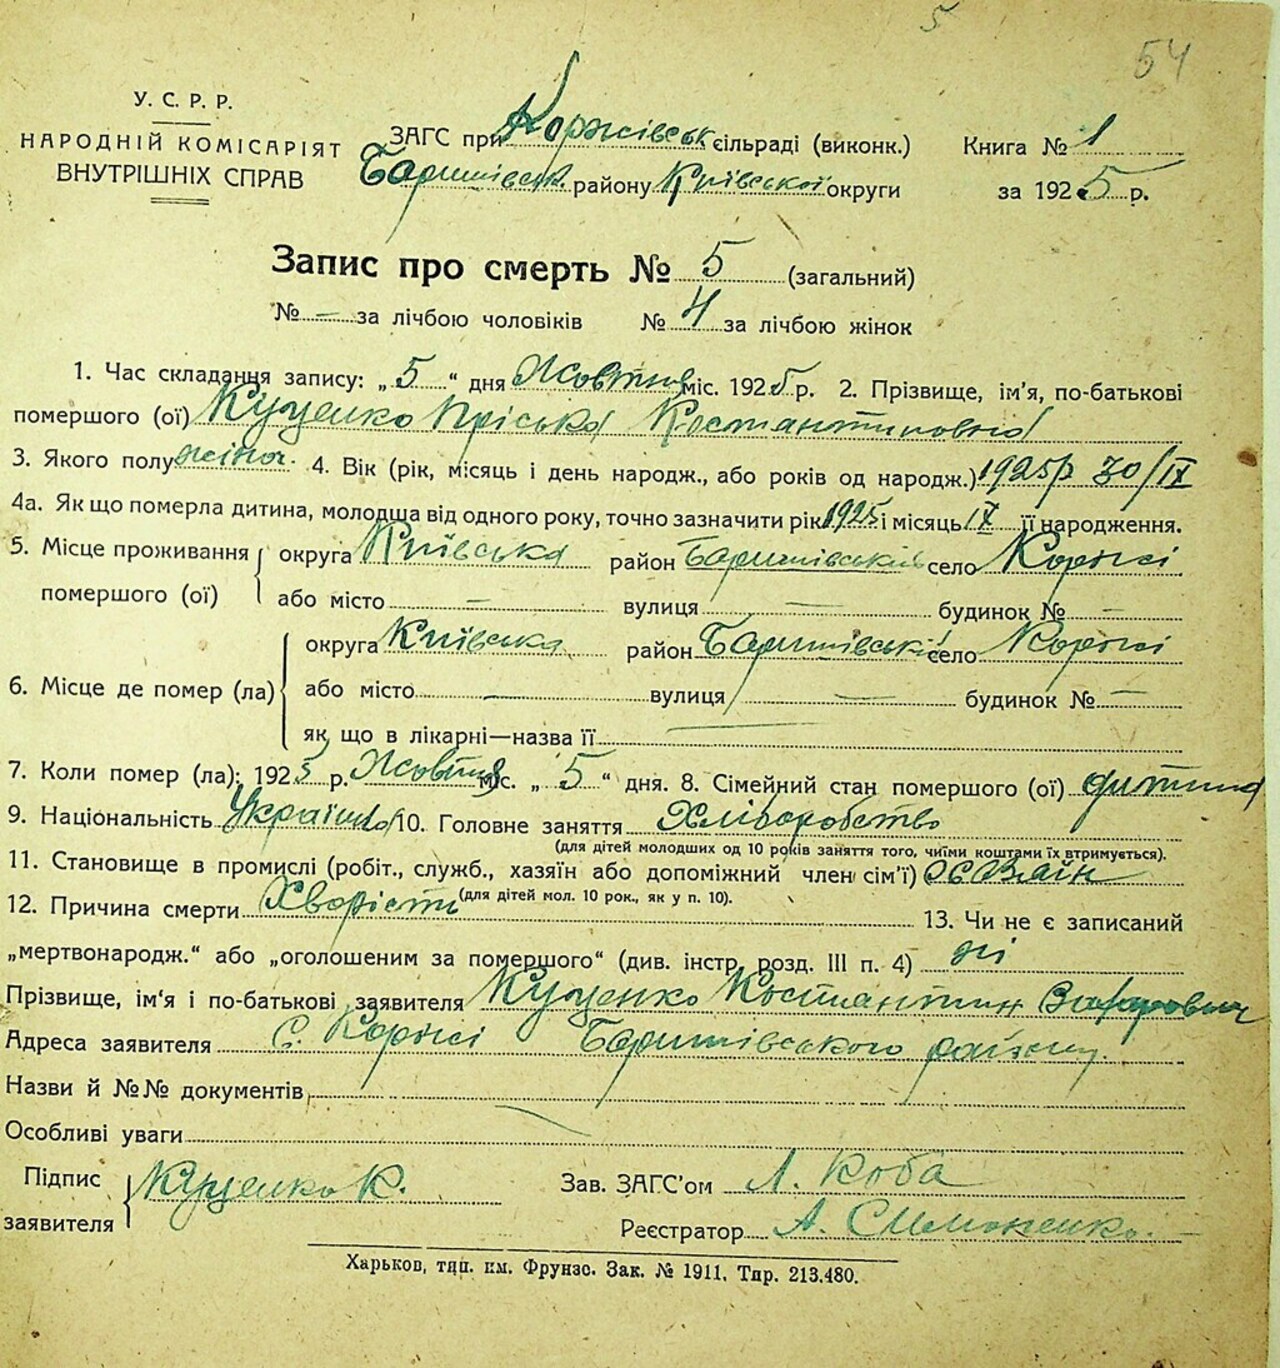 5
54
У. С. Р. Р.
НАРОДНІЙ КОМІСАРІЯТ
ВНУТРІШНІХ СПРАВ
ЗАГС при Коржівськ сільраді (виконк.)
Баришівськ. району Київської округи
Книга № 1
за 1925 р.
Запис про смерть № 5 (загальний)
№ — за лічбою чоловіків № 4 за лічбою жінок
1. Час складання запису: „5“ дня Жовтня міс. 1925 р. 2. Прізвище, ім'я, по-батькові
помершого (ої) Куценко Пріська Костантиновна
3. Якого полу жіноч. 4. Вік (рік, місяць і день народж., або років од народж.) 1925р 30/IX
4а. Як що померла дитина, молодша від одного року, точно зазначити рік 1925 і місяць IX її народження.
5. Місце проживання округа Київська район Баришівський село Коржі
помершого (ої) або місто — вулиця — будинок № —
округа Київська район Баришівський село Коржі
6. Місце де помер (ла) або місто — вулиця — будинок № —
як що в лікарні—назва її —
7. Коли помер (ла): 1925 р. Жовтня міс. „5“ дня. 8. Сімейний стан помершого (ої) дитина
9. Національність Українка 10. Головне заняття Хліборобство
(для дітей молодших од 10 років заняття того, чиїми коштами їх втримується).
11. Становище в промислі (робіт., служб., хазяїн або допоміжний член сім'ї) хазяїн
12. Причина смерти Хворість (для дітей мол. 10 рок., як у п. 10). 13. Чи не є записаний
„мертвонародж.“ або „оголошеним за помершого“ (див. інстр. розд. III п. 4) ні
Прізвище, ім'я і по-батькові заявителя Куценко Костантин Захарович
Адреса заявителя С. Коржі Баришівського району.
Назви й №№ документів
Особливі уваги
Підпис заявителя Куценко К.
Зав. ЗАГС'ом Л. Коба
Реєстратор А. Симоненко.
Харьков, тип. им. Фрунзе. Зак. № 1911. Тир. 213.480.